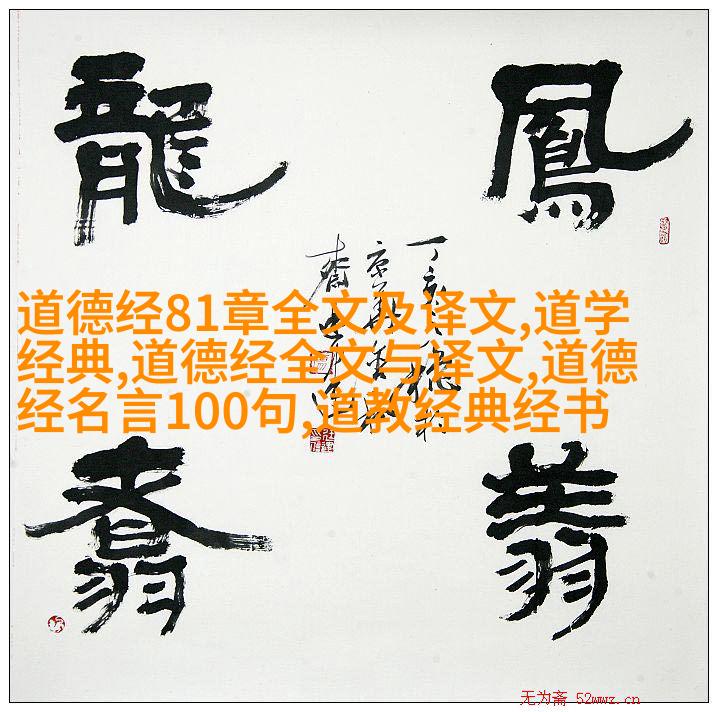 鳳翔
龍翥
丁亥
道德经81章全文及译文,道学
经典,道德经全文与译文,道德
经名言100句,道教经典经书
无为斋 52wwz.cn